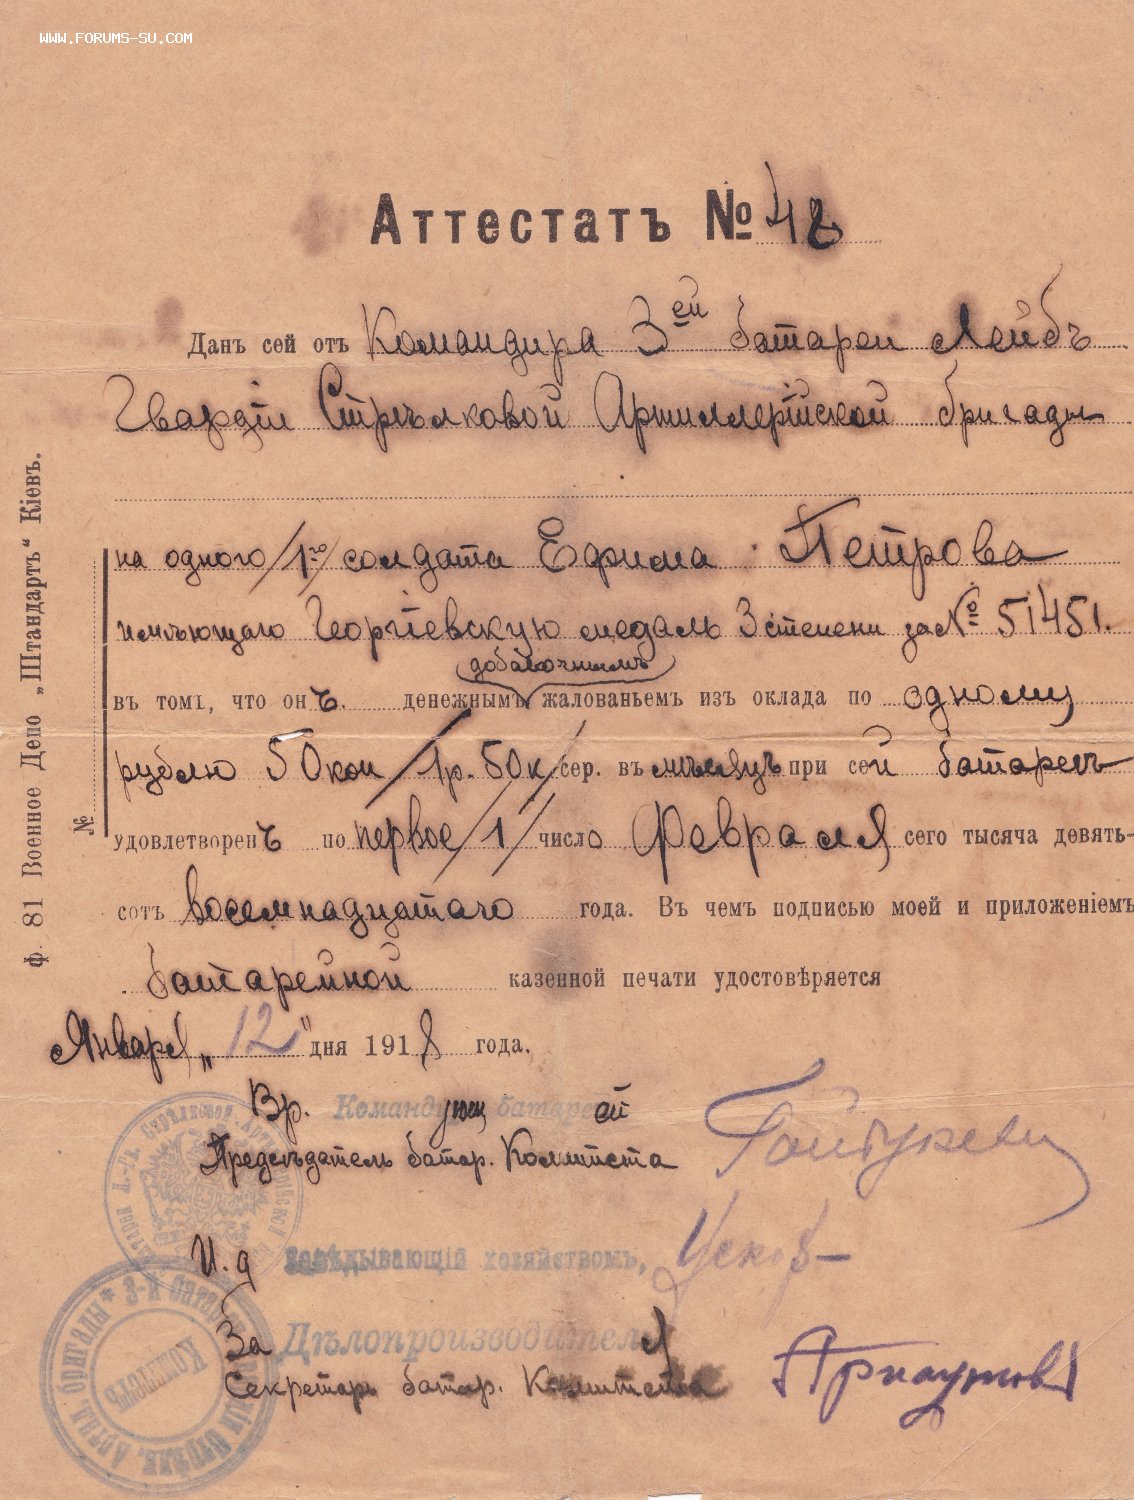 WWW.FORUMS-SU.COM
Аттестатъ № 48
Данъ сей отъ Командира 3ей батареи Лейбъ
Гвардіи Стрѣлковой Артиллерійской бригады
на одного /1го/ солдата Ефима Петрова
имѣющаго Георгіевскую медаль 3 степени за № 51451.
добавочнымъ
въ томъ, что онъ. денежнымъ жалованьемъ изъ оклада по одному
рублю 50 коп /1р. 50к/ сер. въ мѣсяцъ при сей батареѣ
удовлетворенъ по первое /1/ число Февраля сего тысяча девять-
сотъ восемнадцатаго года. Въ чемъ подписью моей и приложеніемъ
батарейной казенной печати удостовѣряется
Января „12" дня 1918 года.
Вр. Командующ батареей
Предсѣдатель батар. Комитета
И. д Завѣдывающій хозяйствомъ, Усковъ
За Дѣлопроизводителя
Секретарь батар. Комитета
Арнаутовъ
№
Ф. 81 Военное Депо „Штандартъ" Кіевъ.
Комитетъ